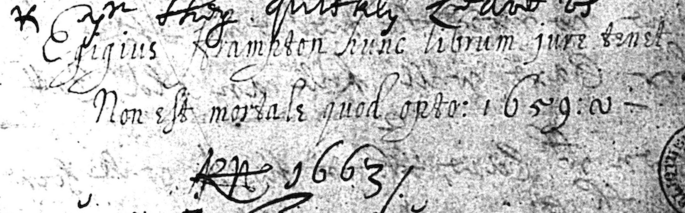 they quickly
Egigius Frampton hunc librum jure tenet
Non est mortale quod opto: 1659:
1663/